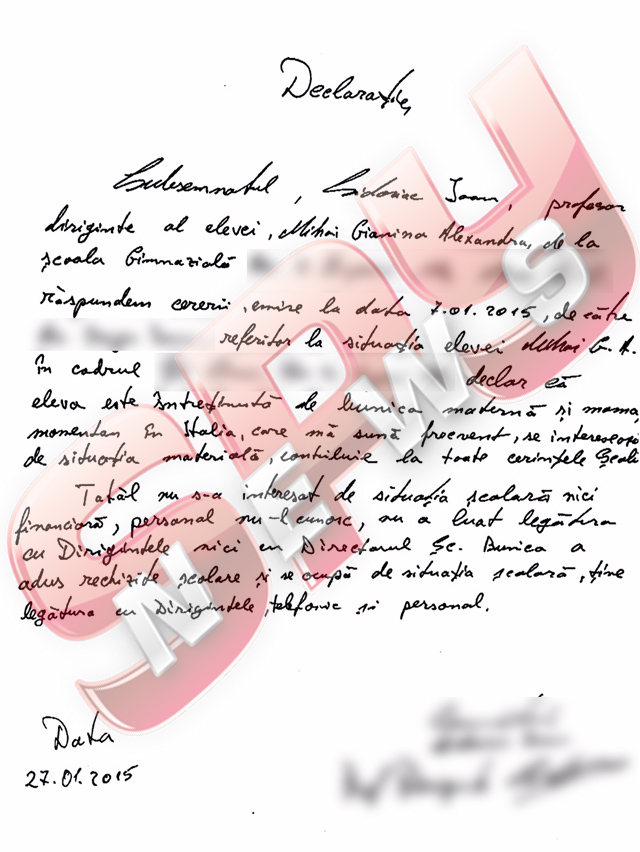 Declarație,
Subsemnatul, Sidoriac Ioan, profesor
diriginte al elevei, Mihai Gianina Alexandra, de la
școala Gimnazială
răspundem cererii, emise la data 7.01.2015, de către
referitor la situația elevei Mihai G. A.
în cadrul declar că
eleva este întreținută de bunica maternă și mama,
momentan în Italia, care mă sună frecvent, se interesează
de situația materială, contribuie la toate cerințele Școlii
Tatăl nu s-a interesat de situația școlară nici
financiară, personal nu-l cunosc, nu a luat legătura
cu Dirigintele nici cu Directorul Șc. Bunica a
adus rechizite școlare și se ocupă de situația școlară, ține
legătura cu Dirigintele, telefonic și personal.
Data
27.01.2015
SPU
NEWS